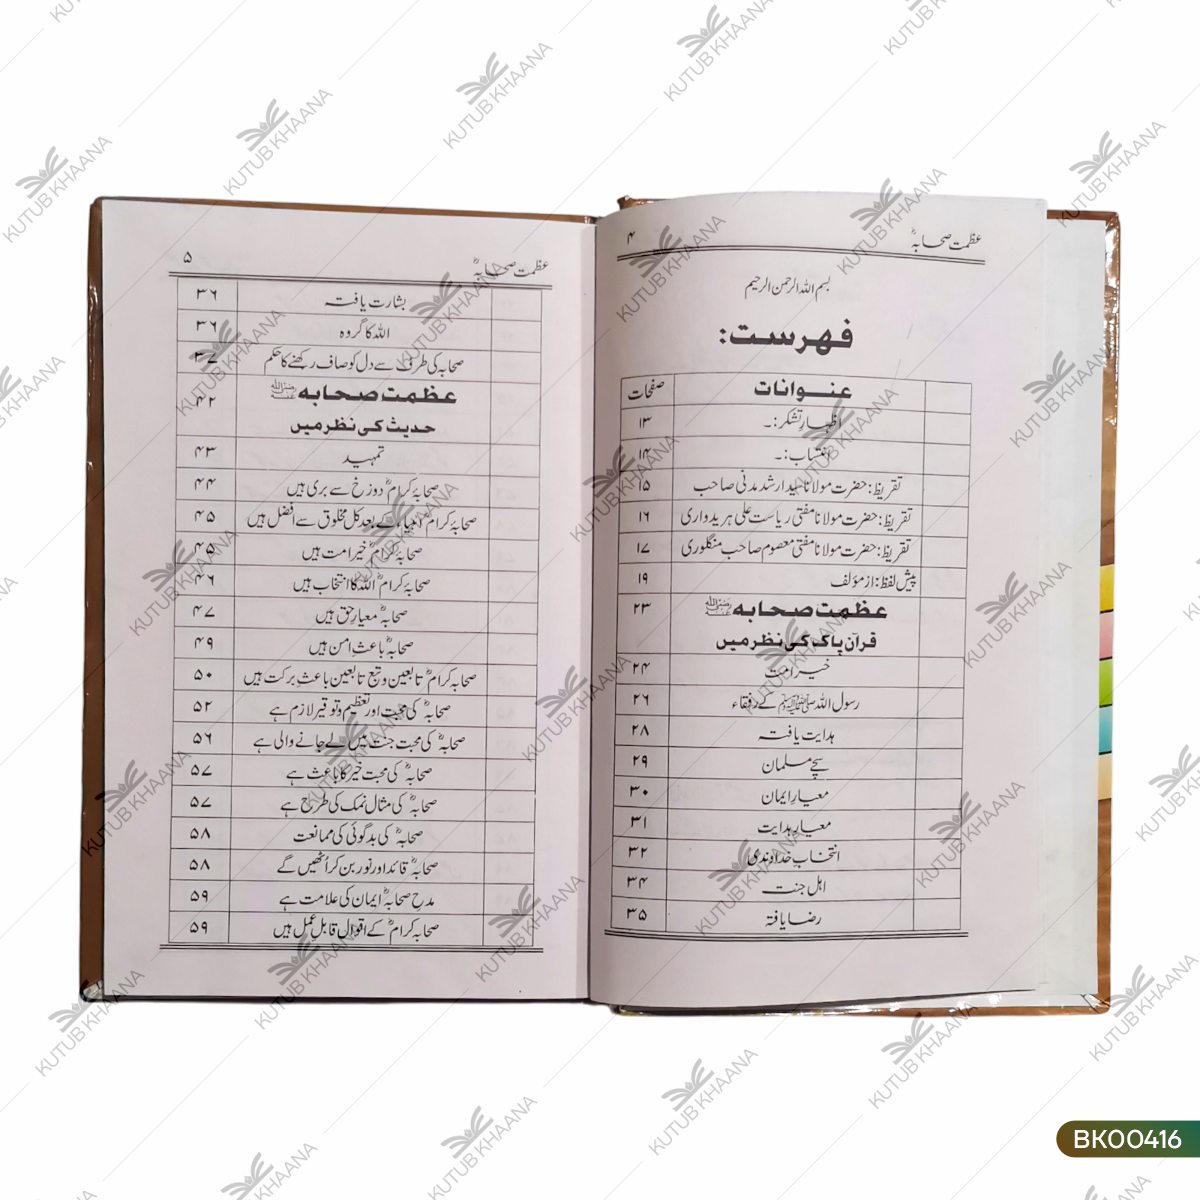 عظمت صحابہؓ ۴
بسم اللہ الرحمن الرحیم
فہرست:
عنوانات صفحات
اظہارِ تشکر:۔ ۱۳
انتساب:۔ ۱۴
تقریظ: حضرت مولانا سید ارشد مدنی صاحب ۱۵
تقریظ: حضرت مولانا مفتی ریاست علی ہریدواری ۱۶
تقریظ: حضرت مولانا مفتی معصوم صاحب منگلوری ۱۷
پیش لفظ: از مؤلف ۱۹
عظمت صحابہ رضی اللہ عنہ ۲۳
قرآن پاک کی نظر میں
خیر امت ۲۴
رسول اللہ ﷺ کے رفقاء ۲۶
ہدایت یافتہ ۲۸
سچے مسلمان ۲۹
معیارِ ایمان ۳۰
معیارِ ہدایت ۳۱
انتخابِ خداوندی ۳۲
اہل جنت ۳۴
رضا یافتہ ۳۵
عظمت صحابہؓ ۵
بشارت یافتہ ۳۶
اللہ کا گروہ ۳۶
صحابہ کی طرف سے دل کو صاف رکھنے کا حکم ۳۷
عظمت صحابہ رضی اللہ عنہ ۴۲
حدیث کی نظر میں
تمہید ۴۳
صحابۂ کرامؓ دوزخ سے بری ہیں ۴۴
صحابۂ کرامؓ انبیاء کے بعد کل مخلوق سے افضل ہیں ۴۵
صحابۂ کرامؓ خیر امت ہیں ۴۵
صحابۂ کرامؓ اللہ کا انتخاب ہیں ۴۶
صحابہؓ معیارِ حق ہیں ۴۷
صحابہؓ باعثِ امن ہیں ۴۹
صحابہ کرامؓ تابعین و تبع تابعین باعثِ برکت ہیں ۵۰
صحابہؓ کی محبت اور تعظیم و توقیر لازم ہے ۵۲
صحابہؓ کی محبت جنت میں لے جانے والی ہے ۵۶
صحابہؓ کی محبت خیر کا باعث ہے ۵۷
صحابہؓ کی مثال نمک کی طرح ہے ۵۷
صحابہؓ کی بدگوئی کی ممانعت ۵۸
صحابہؓ قائد اور نور بن کر اُٹھیں گے ۵۸
مدحِ صحابہؓ ایمان کی علامت ہے ۵۹
صحابہ کرامؓ کے اقوال قابلِ عمل ہیں ۵۹
KUTUB KHAANA
BK00416